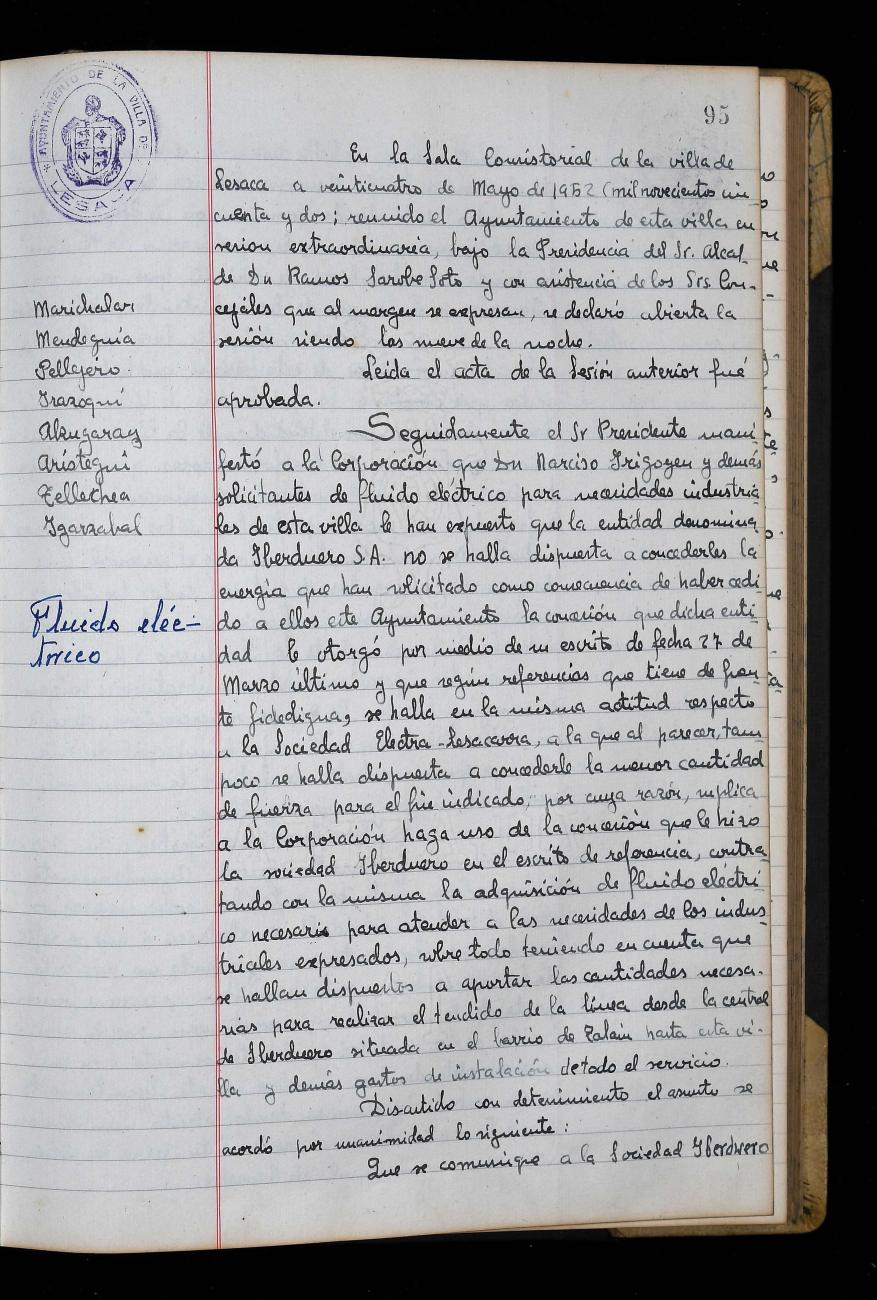 95
AYUNTAMIENTO DE LA VILLA DE
LESACA
En la Sala Consistorial de la villa de
Lesaca a veinticuatro de Mayo de 1952 (mil novecientos cin-
cuenta y dos; reunido el Ayuntamiento de esta villa en
sesion extraordinaria, bajo la Presidencia del Sr. Alcal-
de Dn Ramos Sarobe Soto y con asistencia de los Srs Con-
cejales que al margen se expresan, se declaró abierta la
sesión siendo las nueve de la noche.
Leida el acta de la Sesión anterior fué
aprobada.
Marichalar
Mendeguia
Pellejero
Irazoqui
Alzugaray
Aristegui
Tellechea
Igarzabal
Fluido eléc-
trico
Seguidamente el Sr Presidente mani-
festó a la Corporación que Dn Narciso Irigoyen y demás
solicitantes de fluido eléctrico para necesidades industria
les de esta villa le han expuesto que la entidad denomina
da Iberduero S.A. no se halla dispuesta a concederles la
energia que han solicitado como consecuencia de haber cedi-
do a ellos este Ayuntamiento la concesión que dicha enti-
dad le otorgó por medio de su escrito de fecha 27 de
Marzo último y que según referencias que tiene de fuen-
te fidedigna, se halla en la misma actitud respecto
a la Sociedad Electra-Lesacarra, a la que al parecer, tam
poco se halla dispuesta a concederle la menor cantidad
de fuerza para el fin indicado, por cuya razón, suplica
a la Corporación haga uso de la concesión que le hizo
la sociedad Iberduero en el escrito de referencia, contra-
tando con la misma la adquisición de fluido eléctri-
co necesario para atender a las necesidades de los indus-
triales expresados, sobre todo teniendo en cuenta que
se hallan dispuestos a aportar las cantidades necesa-
rias para realizar el tendido de la línea desde la central
de Iberduero situada en el barrio de Zalain hasta esta vi-
lla y demás gastos de instalación de todo el servicio.
Discutido con detenimiento el asunto se
acordó por unanimidad lo siguiente:
Que se comunique a la Sociedad Iberduero